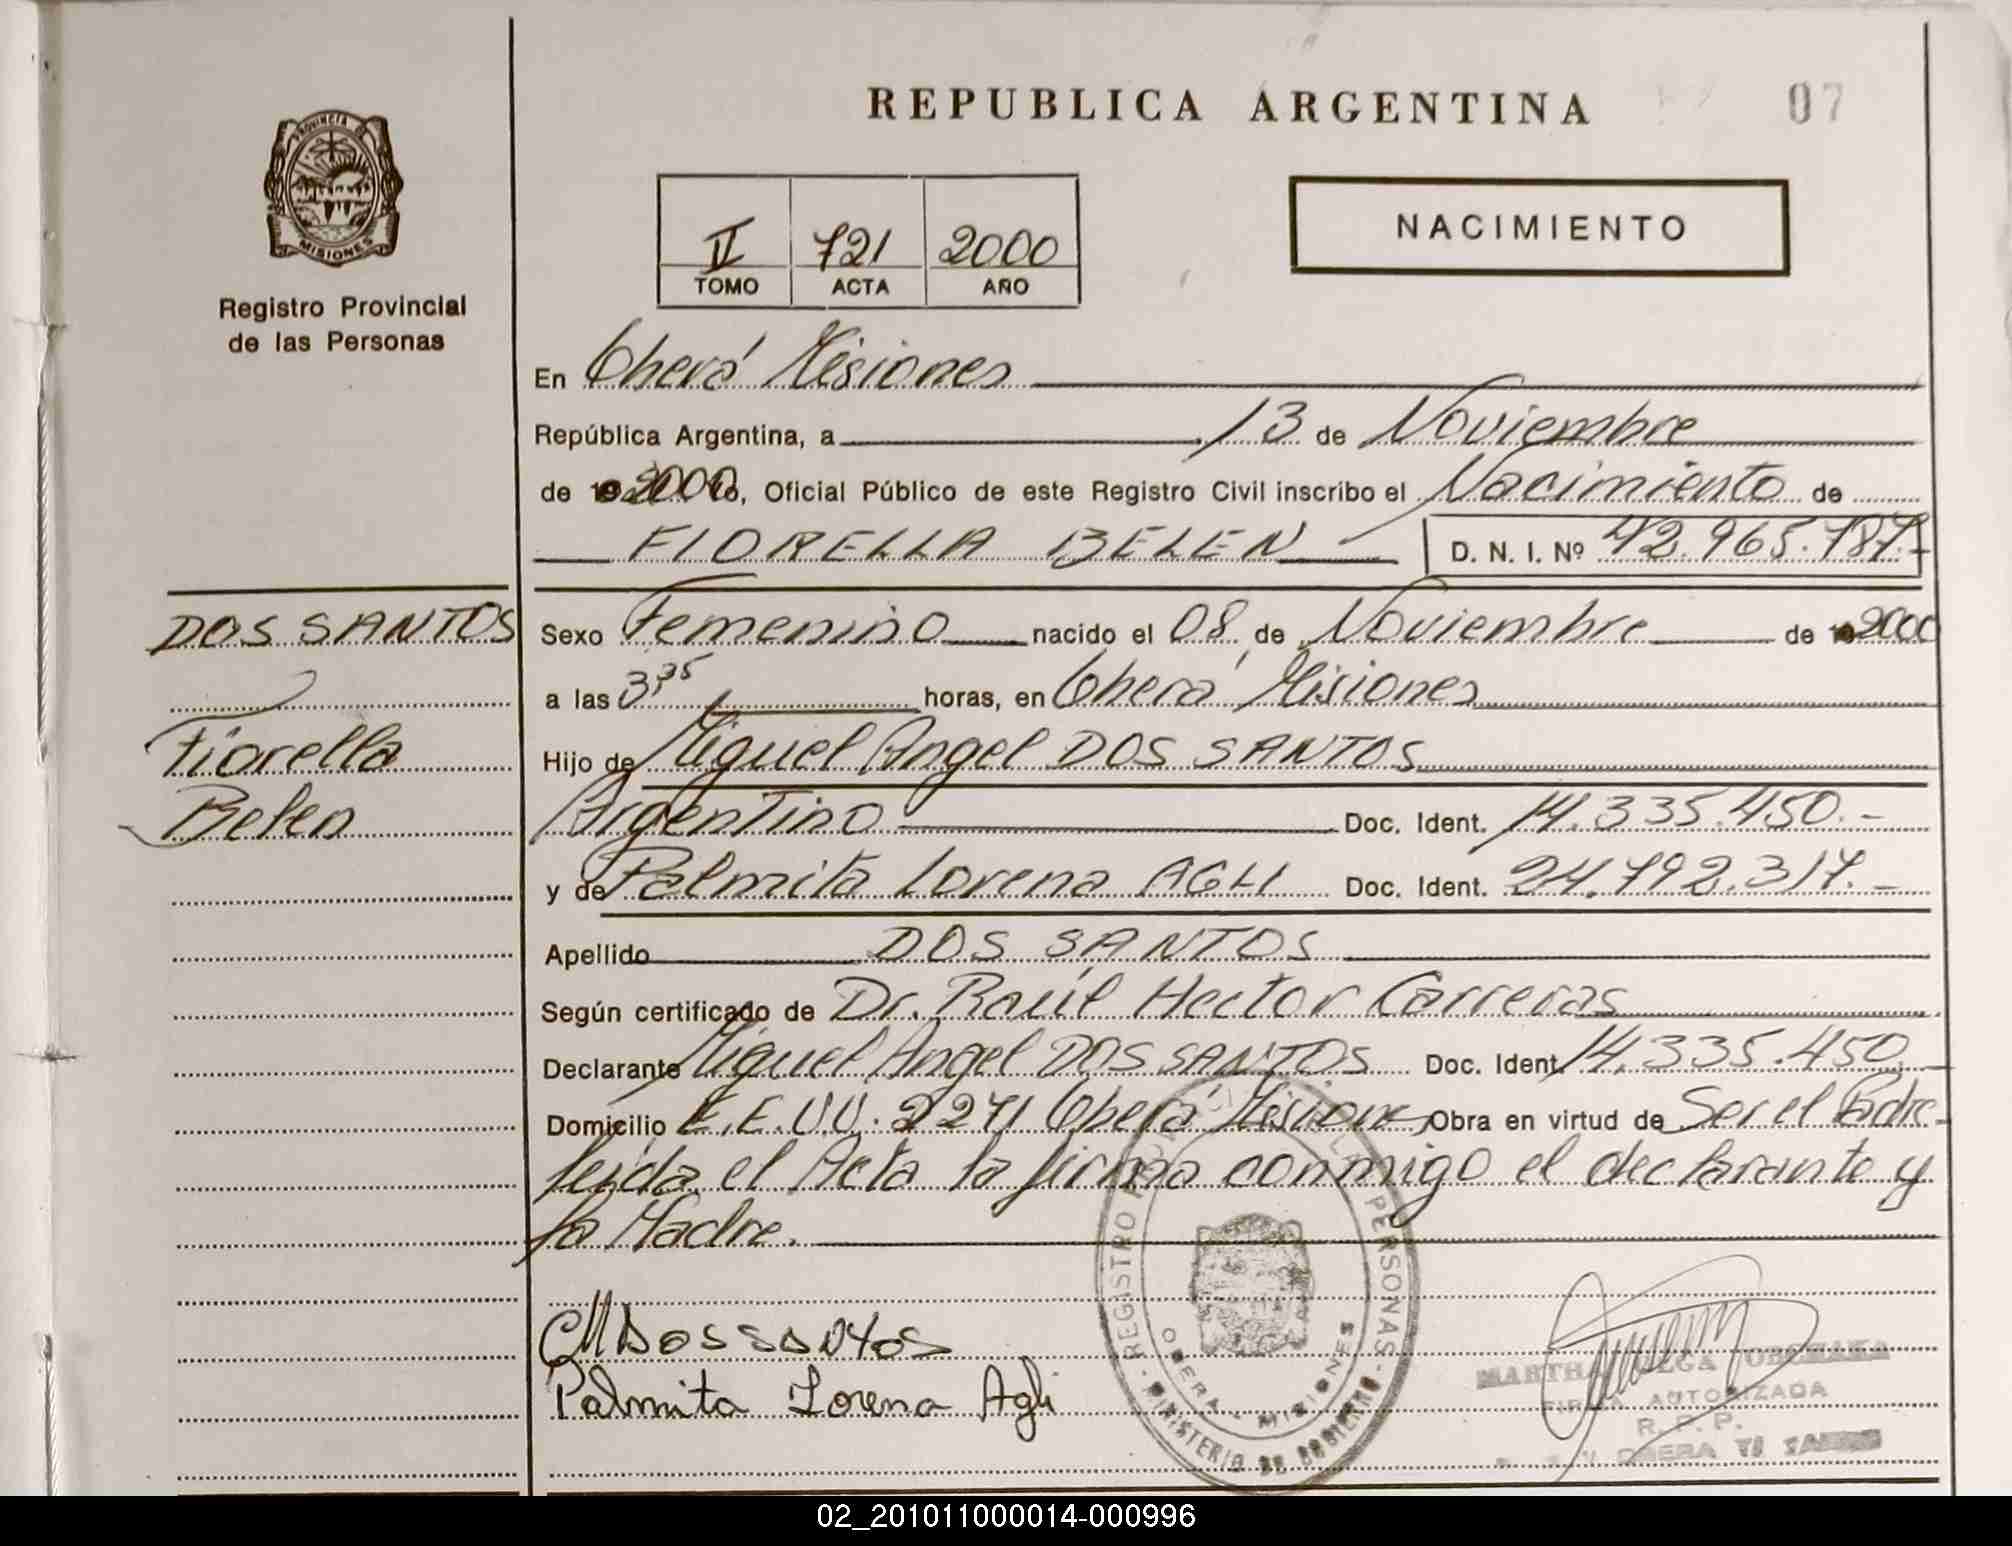 REPUBLICA ARGENTINA
07
PROVINCIA DE
MISIONES
Registro Provincial
de las Personas
II 721 2000
TOMO ACTA AÑO
NACIMIENTO
En Oberá Misiones
República Argentina, a 13 de Noviembre
de 2000, Oficial Público de este Registro Civil inscribo el Nacimiento de
FIORELLA BELEN D. N. I. Nº 42.965.787.-
DOS SANTOS
Fiorella
Belen
Sexo Femenino nacido el 08 de Noviembre de 2000
a las 3,35 horas, en Oberá Misiones
Hijo de Miguel Angel DOS SANTOS
Argentino Doc. Ident. 14.335.450.-
y de Palmita Lorena AGLI Doc. Ident. 24.792.317.-
Apellido DOS SANTOS
Según certificado de Dr. Raúl Hector Carreras
Declarante Miguel Angel DOS SANTOS Doc. Ident. 14.335.450.-
Domicilio E.E.U.U. 2271 Oberá Misiones Obra en virtud de Ser el Padre-
leída el Acta la firma conmigo el declarante y
la Madre.
MDOSSANTOS
Palmita Lorena Agli
REGISTRO PERSONAS
OBERA - MISIONES
MINISTERIO DE GOBIERNO
MARTHA OLGA
FIRMA AUTORIZADA
R. P. P.
OBERA
02_201011000014-000996